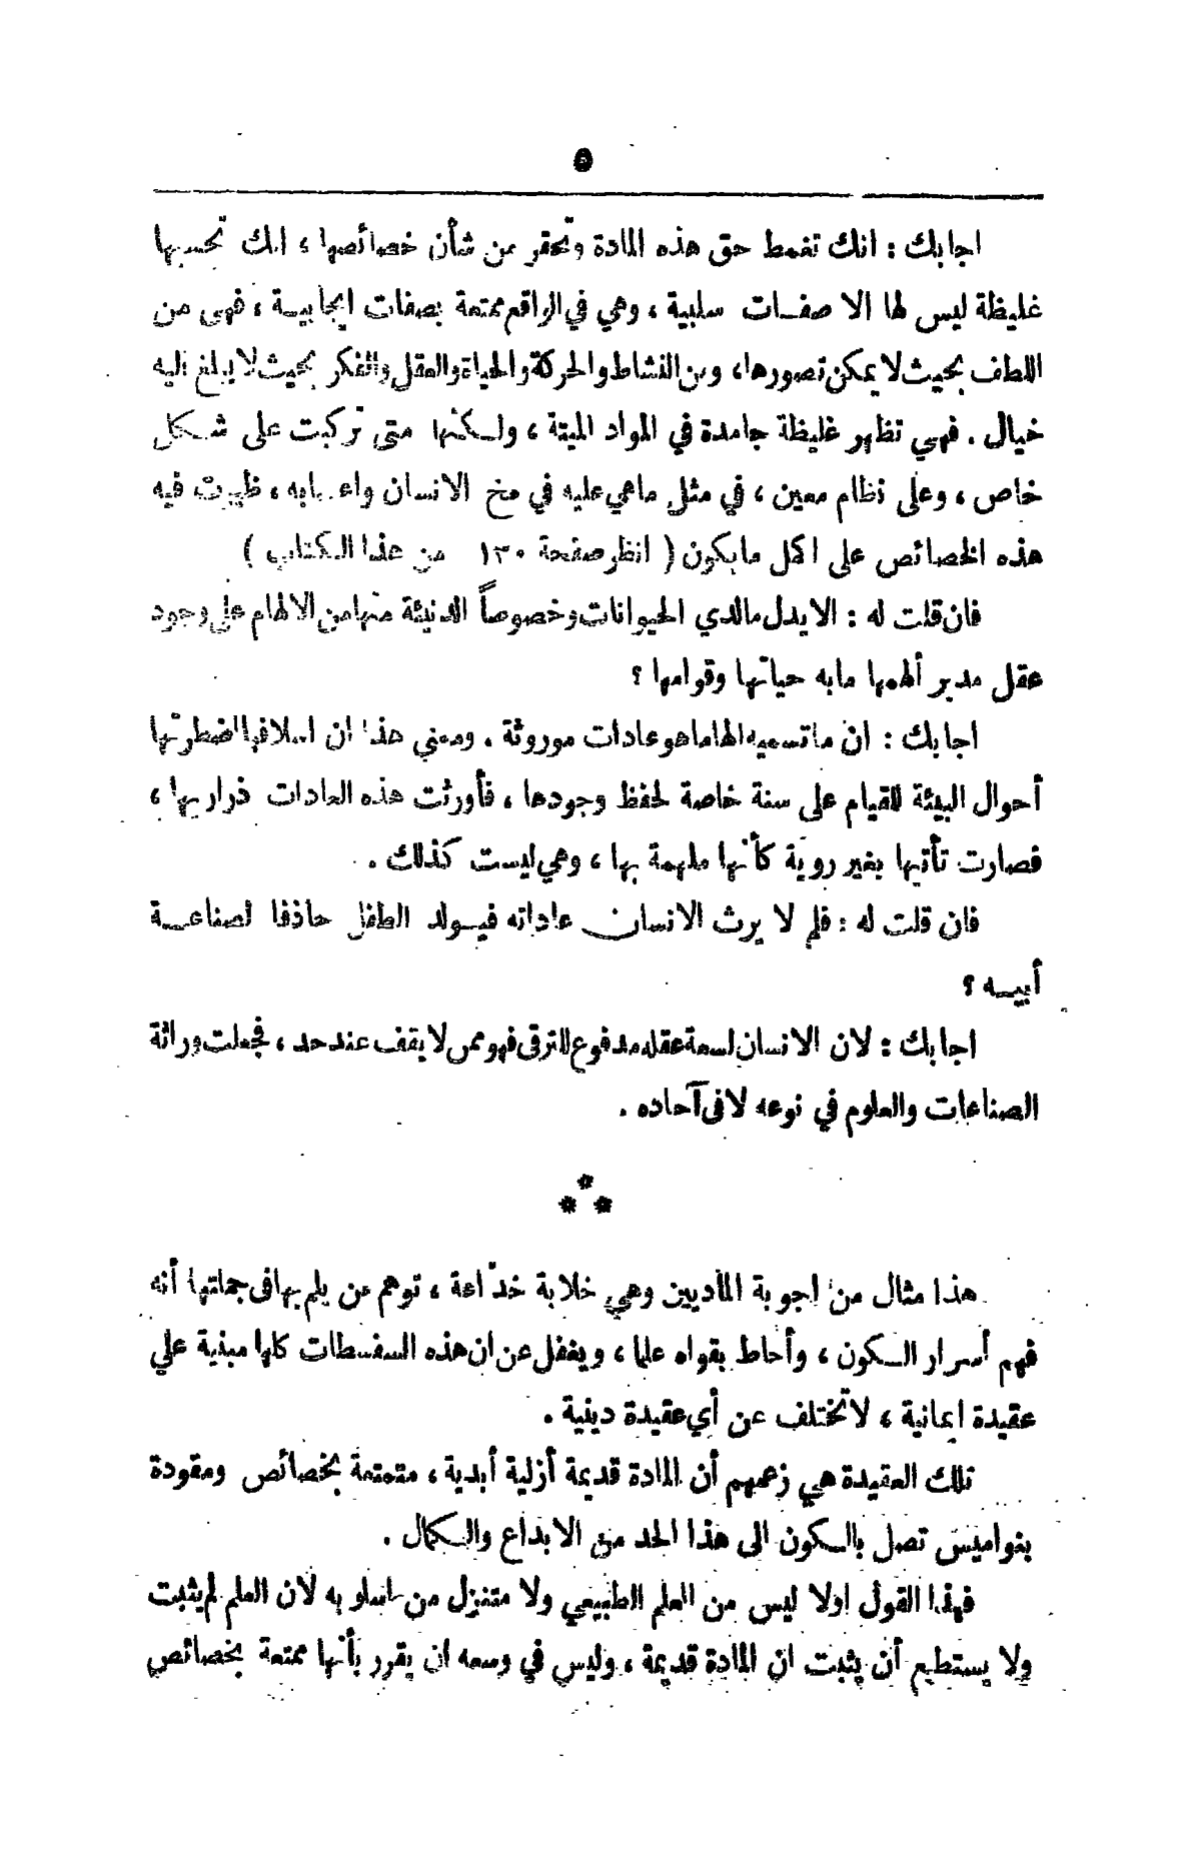 ٥
اجابك : انك تغمط حق هذه المادة وتحقر من شأن خصائصها ، انك تحسبها
غليظة ليس لها الا صفات سلبية ، وهي في الواقع ممتعة بصفات ايجابية ، فهى من
اللطف بحيث لا يمكن تصورها ، ومن النشاط والحركة والحياة والعقل والفكر بحيث لا يبلغ اليه
خيال . فهي تظهر غليظة جامدة في المواد الميتة ، ولكنها متى تركبت على شكل
خاص ، وعلى نظام معين ، في مثل ماهي عليه في مخ الانسان واعصابه ، ظهرت فيه
هذه الخصائص على اكمل مايكون ( انظر صفحة ١٣٠ من هذا الكتاب )
فان قلت له : الا يدل مالدي الحيوانات وخصوصاً الدنيئة منها من الالهام على وجود
عقل مدبر ألهمها مابه حياتها وقوامها ؟
اجابك : ان ماتسميه الهاما هو عادات موروثة . ومعني هذا ان اسلافها اضطرتها
أحوال البيئة للقيام على سنة خاصة لحفظ وجودها ، فأورثت هذه العادات ذراريها ،
فصارت تأتيها بغير روية كأنها ملهمة بها ، وهي ليست كذلك .
فان قلت له : فلم لا يرث الانسان عاداته فيولد الطفل حاذقا لصناعة
أبيه ؟
اجابك : لان الانسان لسعة عقله مدفوع للترقى فهو ممن لا يقف عند حد ، فجعلت وراثة
الصناعات والعلوم في نوعه لا فى آحاده .
* * *
هذا مثال من اجوبة الماديين وهي خلابة خدّاعة ، توهم من يلم بها فى جملتها أنه
فهم أسرار الكون ، وأحاط بقواه علما ، ويغفل عن ان هذه السفسطات كلها مبنية علي
عقيدة ايمانية ، لا تختلف عن أي عقيدة دينية .
تلك العقيدة هي زعمهم أن المادة قديمة أزلية أبدية ، متمتعة بخصائص ومقودة
بنواميس تصل بالكون الى هذا الحد من الابداع والكمال .
فهذا القول اولا ليس من العلم الطبيعي ولا متنزل من اسلوبه لان العلم لم يثبت
ولا يستطيع أن يثبت ان المادة قديمة ، وليس في وسعه ان يقرر بأنها ممتعة بخصائص